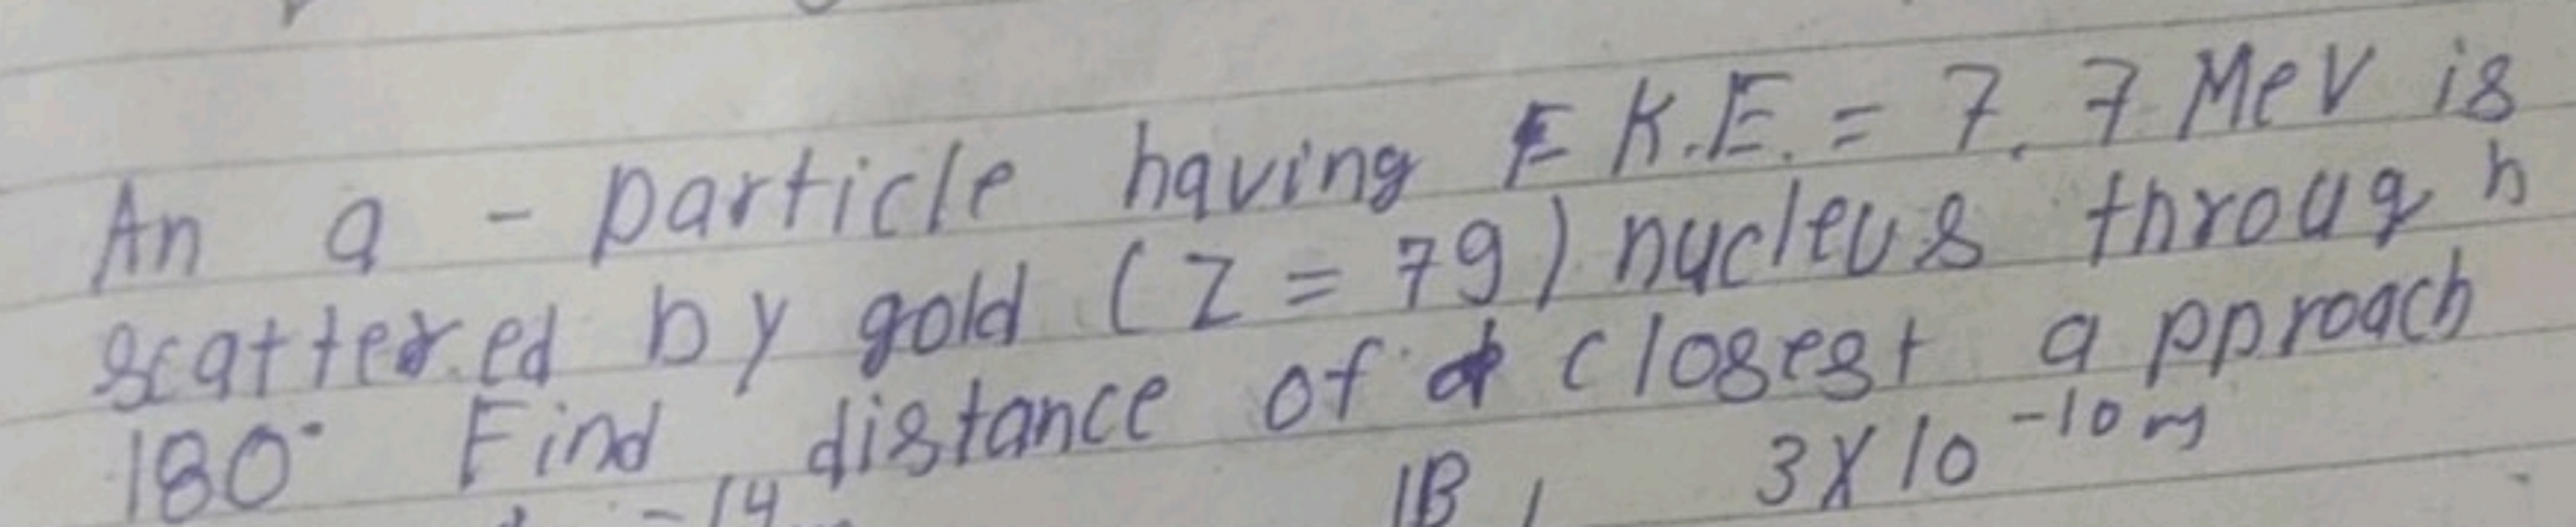 An α - particle having K.E. = 7.7 MeV is
scattered by gold (Z = 79) nucleus through
180° Find distance of closest approach
-14 1B) 3X10-10 m